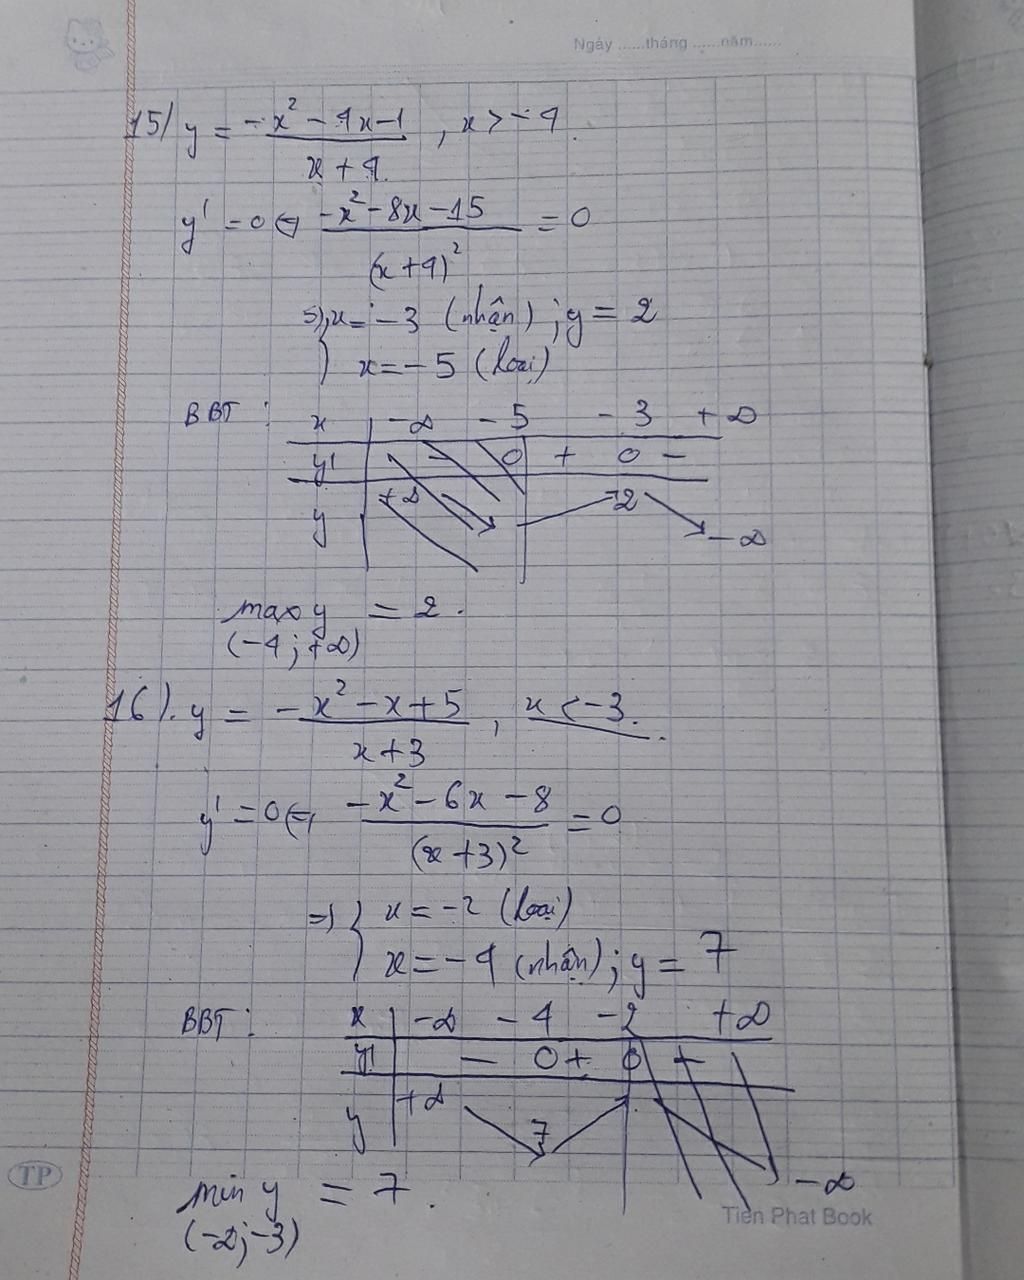 Ngày ......tháng ......năm......
15/ y = (-x² - 4x - 1)/(x + 4), x > -4.
y' = 0 ⇔ (-x² - 8x - 15)/(x + 4)² = 0
x = -3 (nhận); y = 2
x = -5 (loại)
BBT:
x -∞ -5 -3 +∞
y' - 0 + 0 -
y +∞ -2 -∞
max y = 2.
(-4; +∞)
16). y = (-x² - x + 5)/(x + 3), x < -3.
y' = 0 ⇔ (-x² - 6x - 8)/(x + 3)² = 0
⇒ x = -2 (loại)
x = -4 (nhận); y = 7
BBT:
x -∞ -4 -2 +∞
y' - 0 + 0 +
y +∞ 7 -∞
min y = 7.
(-∞; -3)
TP
Tien Phat Book